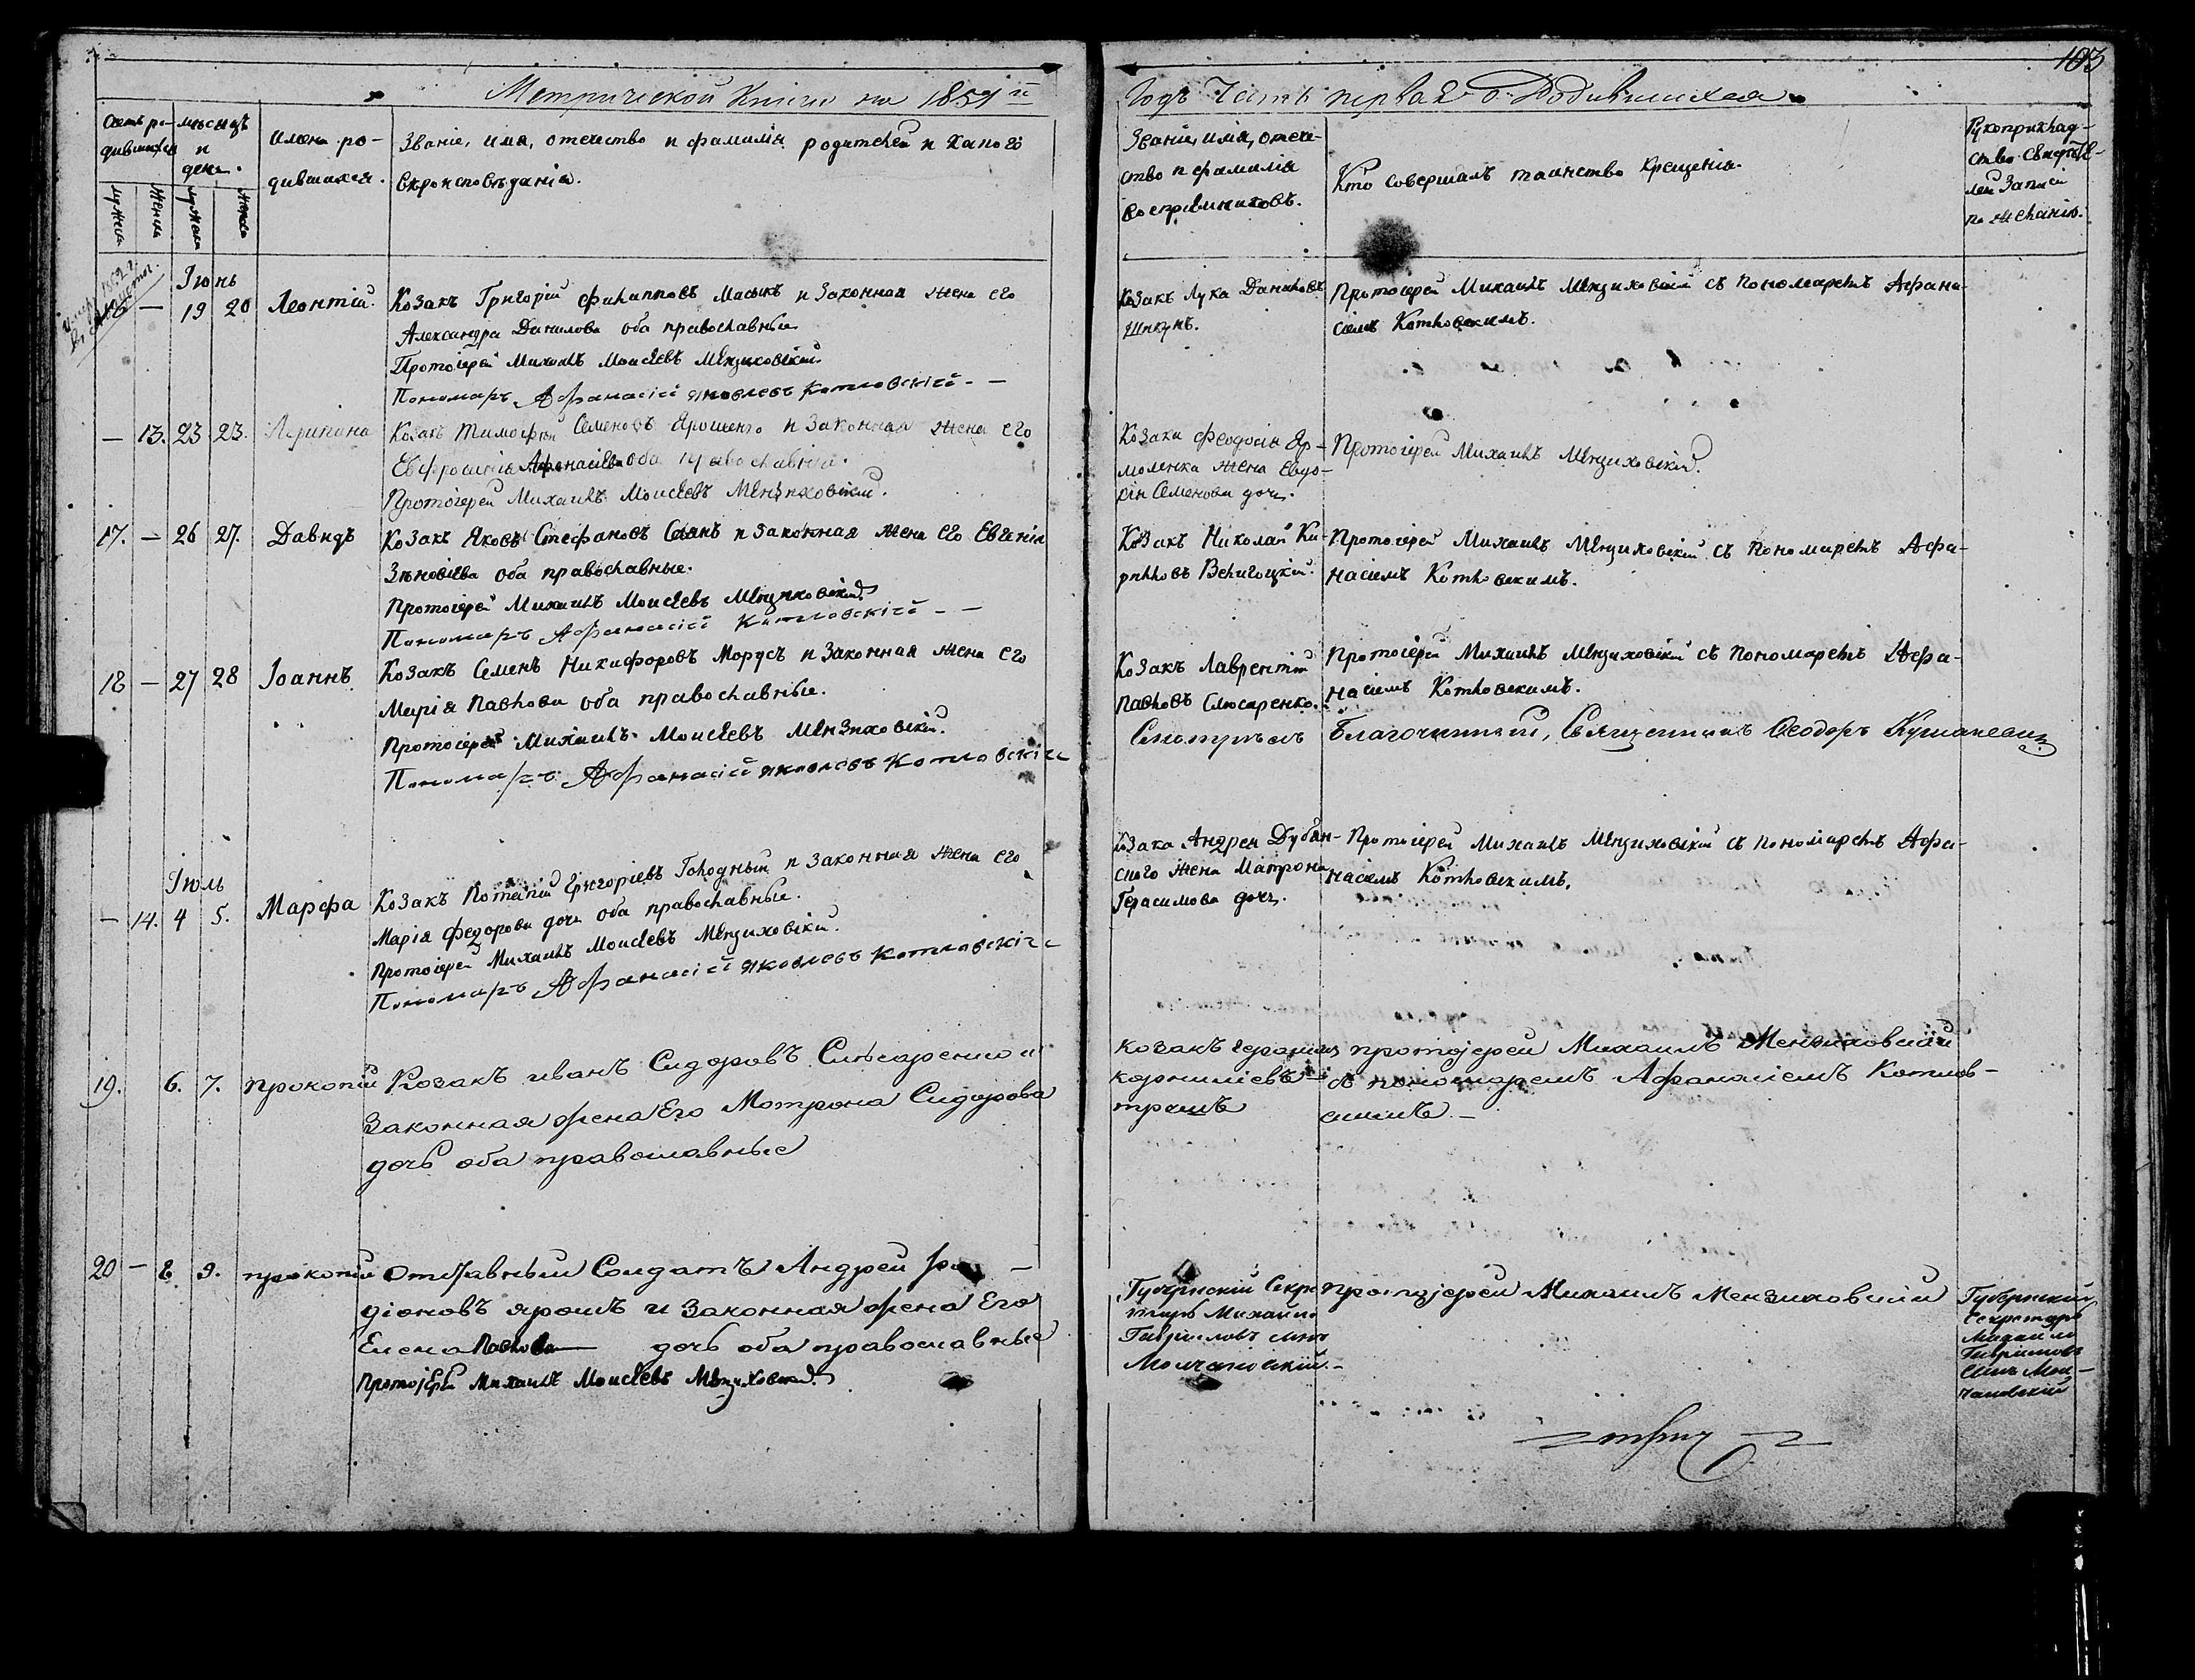 103
Метрической Книги на 1851 й
Годъ Часть первая о Родившихся
Счетъ ро-
дившихся
мѣсяцъ
и
день.
имена ро-
дившихся.
Званіе, имя, отечество и фамилія родителей и какого
вѣроисповѣданія.
Званіе, имя, отече-
ство и фамилія
воспріемниковъ.
Кто совершалъ таинство крещенія.
Рукоприклад-
ство свидѣте-
лей записи
по желанію.
Іюнь
— 19 20 Леонтій. Козакъ Григорій Филипповъ Масыкъ и законная жена его
Александра Данилова оба православные
Протоіерей Михаилъ Моисѣевъ Мензиховскій
Пономаръ Афанасій Яковлевъ Котловскій
Козакъ Лука Даниловъ
Шикунъ.
Протоіерей Михаилъ Мензиховскій съ пономаремъ Афана-
сіемъ Котловскимъ.
— 13. 23 23. Козакъ Тимофей Семеновъ Ярошенко и законная жена его
Евфросинія Афанасіева оба православные.
Протоіерей Михаилъ Моисѣевъ Мензиховскій.
Козака Феодосія Яр-
моленка жена Евдо-
кія Семенова дочь.
Протоіерей Михаилъ Мензиховскій.
17. — 26 27. Давидъ Козакъ Яковъ Стефановъ и законная жена его Евгенія
Зѣновіева оба православные.
Протоіерей Михаилъ Моисѣевъ Мензиховскій
Пономаръ Афанасій Котловскій
Козакъ Николай Ки-
рилловъ Велигоцкій.
Протоіерей Михаилъ Мензиховскій съ пономаремъ Афа-
насіемъ Котловскимъ.
18 — 27 28 Іоаннъ Козакъ Семенъ Никифоровъ Морусъ и законная жена его
Марія Павлова оба православные.
Протоіерей Михаилъ Моисѣевъ Мензиховскій.
Пономаръ Афанасій Яковлевъ Котловскій
Козакъ Лаврентій
Павловъ Слюсаренко.
Протоіерей Михаилъ Мензиховскій съ пономаремъ Афа-
насіемъ Котловскимъ.
Смотрѣлъ Благочинный, Священникъ Ѳеодоръ
Іюль
— 14. 4 5. Марфа Козакъ Потапій Григоріевъ Голодный и законная жена его
Марія Федорова дочь оба православные.
Протоіерей Михаилъ Моисѣевъ Мензиховскій.
Пономаръ Афанасій Яковлевъ Котловскій
Козака Андрея Дубян-
ского жена Матрона
Герасимова дочь.
Протоіерей Михаилъ Мензиховскій съ пономаремъ Афа-
насіемъ Котловскимъ.
19. 6. 7. прокопій Козакъ иванъ Сидоровъ Слѣсаренко и
Законная жена Его Мотрона Сидорова
дочь оба православные
козакъ
корниліевъ
протоіерей Михаилъ Мензиховскій
съ пономаремъ Афанасіемъ Котлов-
скимъ
20 — 8 9. прокопій Отставный Солдатъ Андрей Ро-
діоновъ ярошъ и Законная жена Его
Елена Павлова дочь оба православные
Протоіерей Михаилъ Моисѣевъ Мензиховскій
Губернскій Секре-
тарь Михайло
Гавріиловъ сынъ
Молчановскій
протоіерей Михаилъ Мензиховскій
Губернскій
Секретарь
Михайло
Гавріиловъ
Сынъ Мол-
чановскій